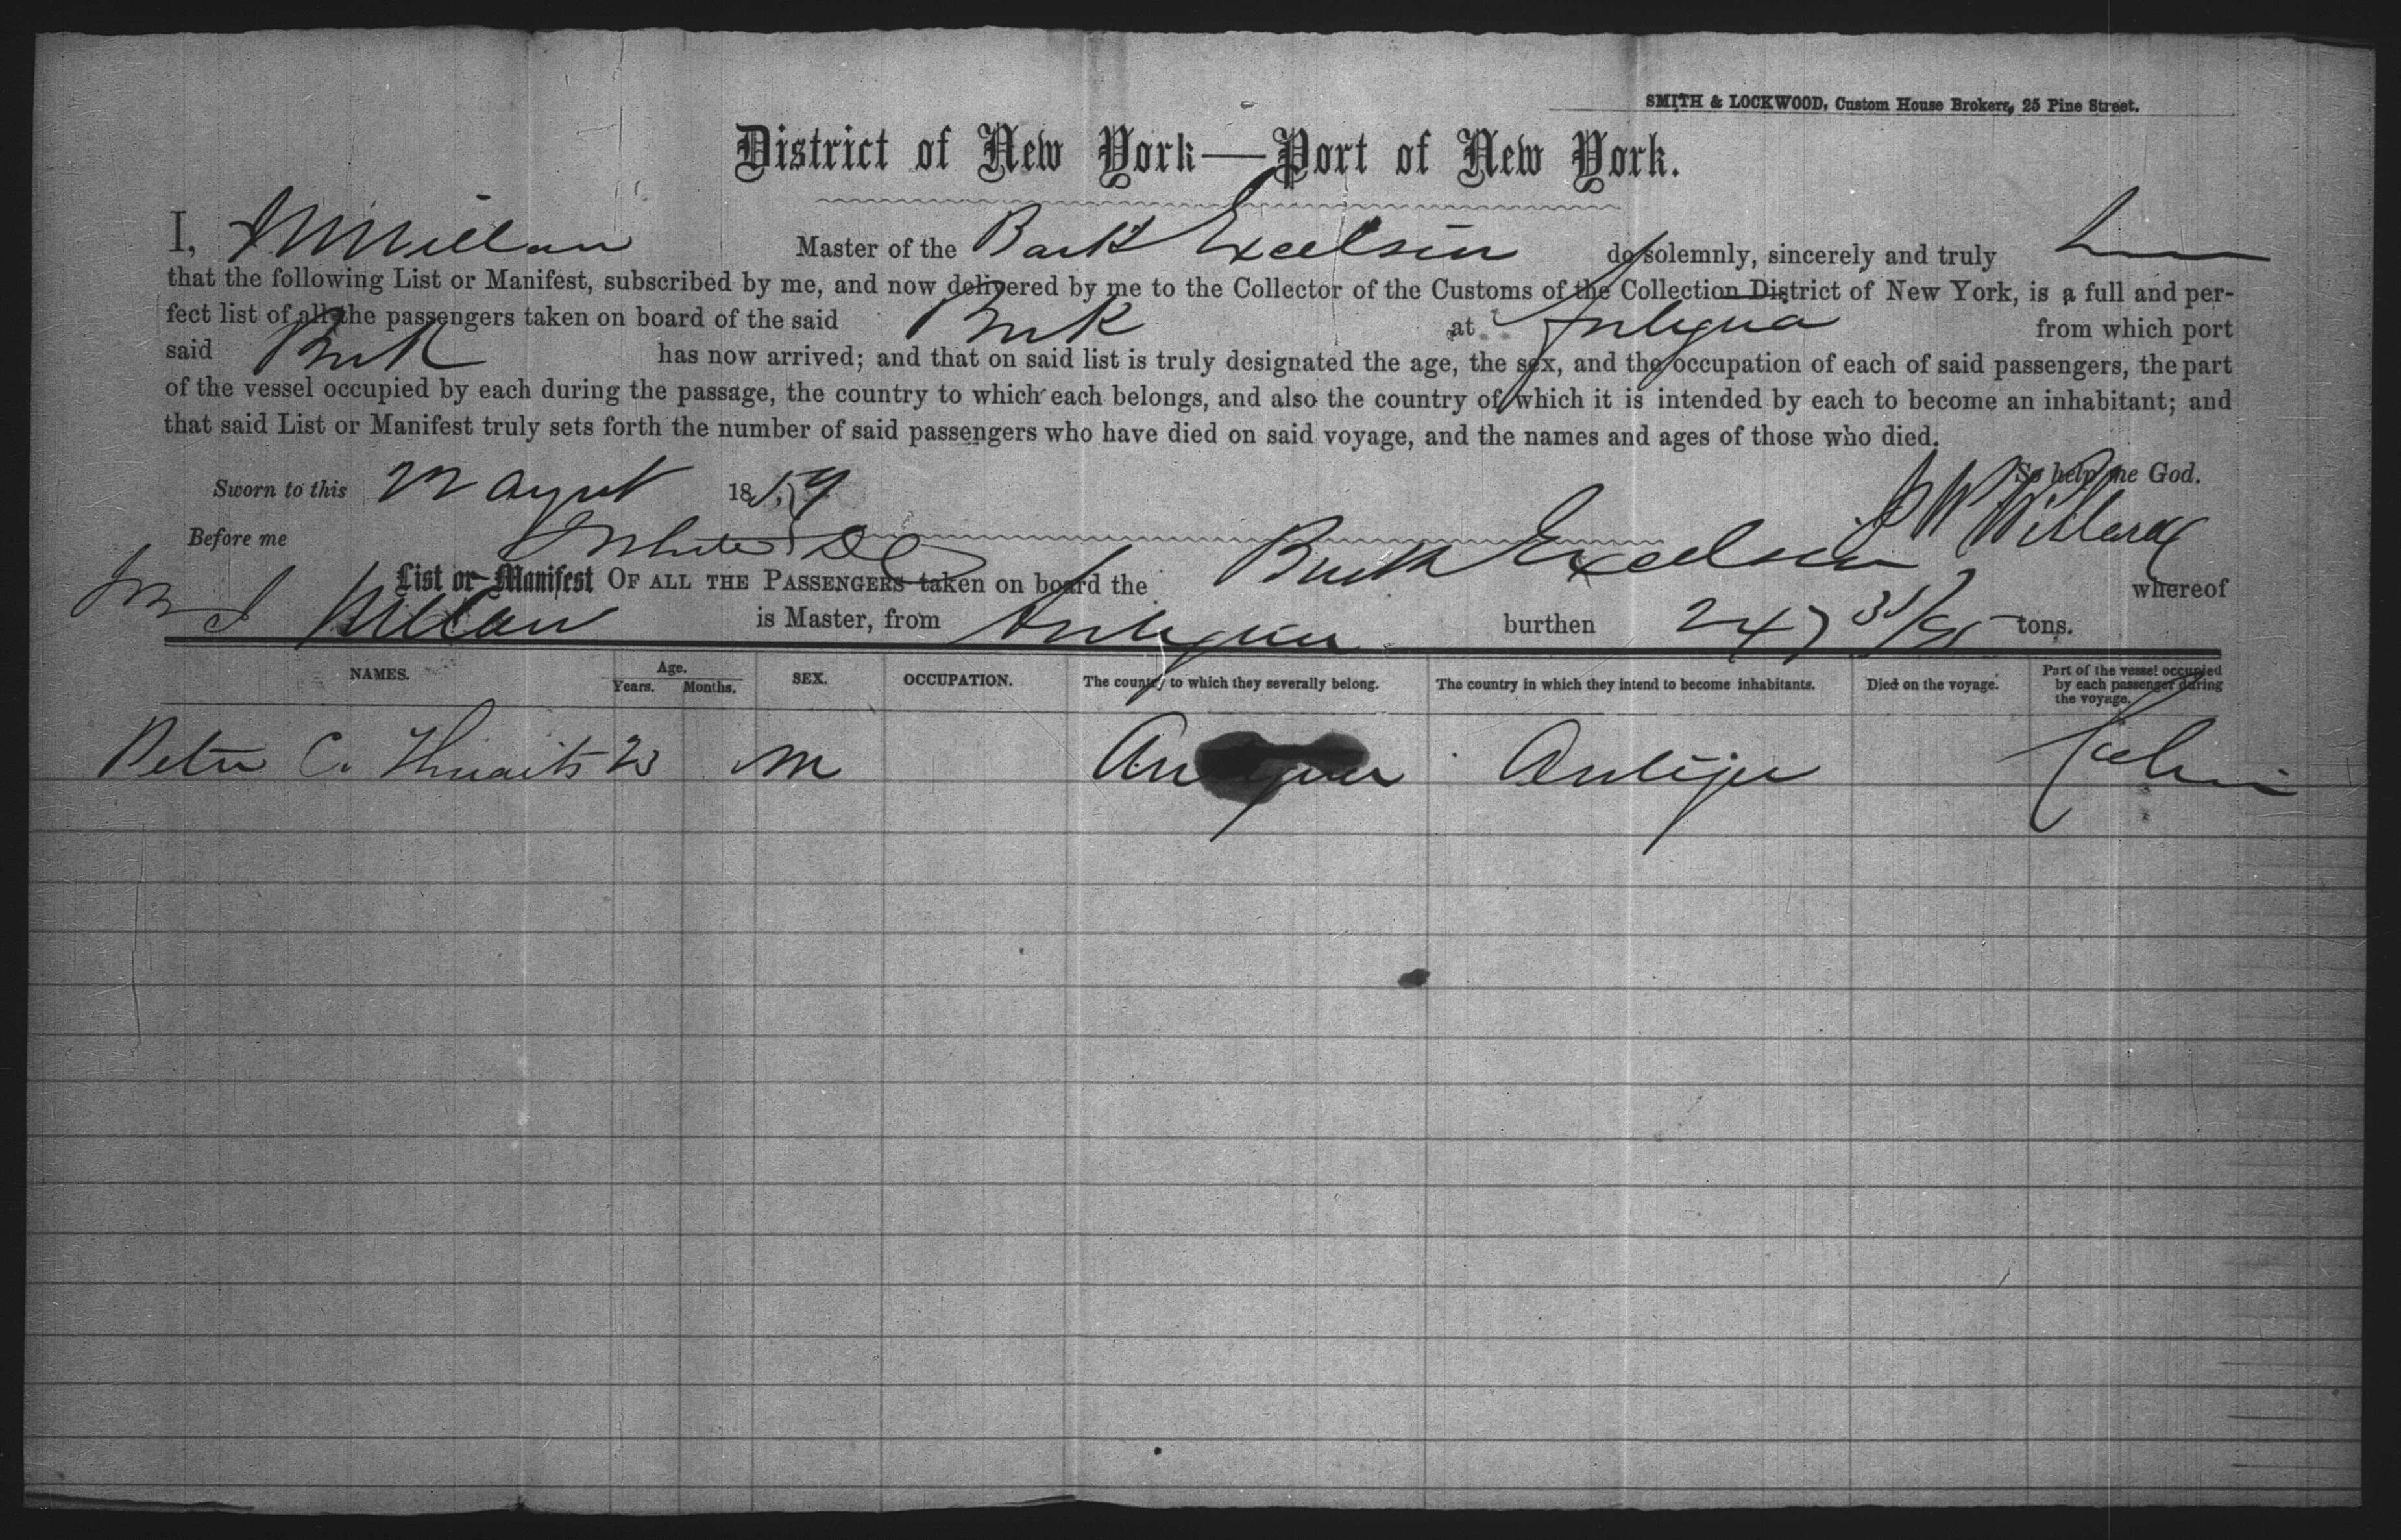 SMITH & LOCKWOOD, Custom House Brokers, 25 Pine Street.
District of New York—Port of New York.
I, Master of the Bark Excelsior do solemnly, sincerely and truly
that the following List or Manifest, subscribed by me, and now delivered by me to the Collector of the Customs of the Collection District of New York, is a full and per-
fect list of all the passengers taken on board of the said Bark at Antigua from which port
said Bark has now arrived; and that on said list is truly designated the age, the sex, and the occupation of each of said passengers, the part
of the vessel occupied by each during the passage, the country to which each belongs, and also the country of which it is intended by each to become an inhabitant; and
that said List or Manifest truly sets forth the number of said passengers who have died on said voyage, and the names and ages of those who died.
So help me God.
Sworn to this 22 August 1859
Before me
List or Manifest OF ALL THE PASSENGERS taken on board the Bark Excelsior whereof
is Master, from Antigua burthen 247 tons.
NAMES. Age. Years. Months. SEX. OCCUPATION. The country to which they severally belong. The country in which they intend to become inhabitants. Died on the voyage. Part of the vessel occupied by each passenger during the voyage.
Peter C. Thwaits 23 M Antigua Antigua Cabin